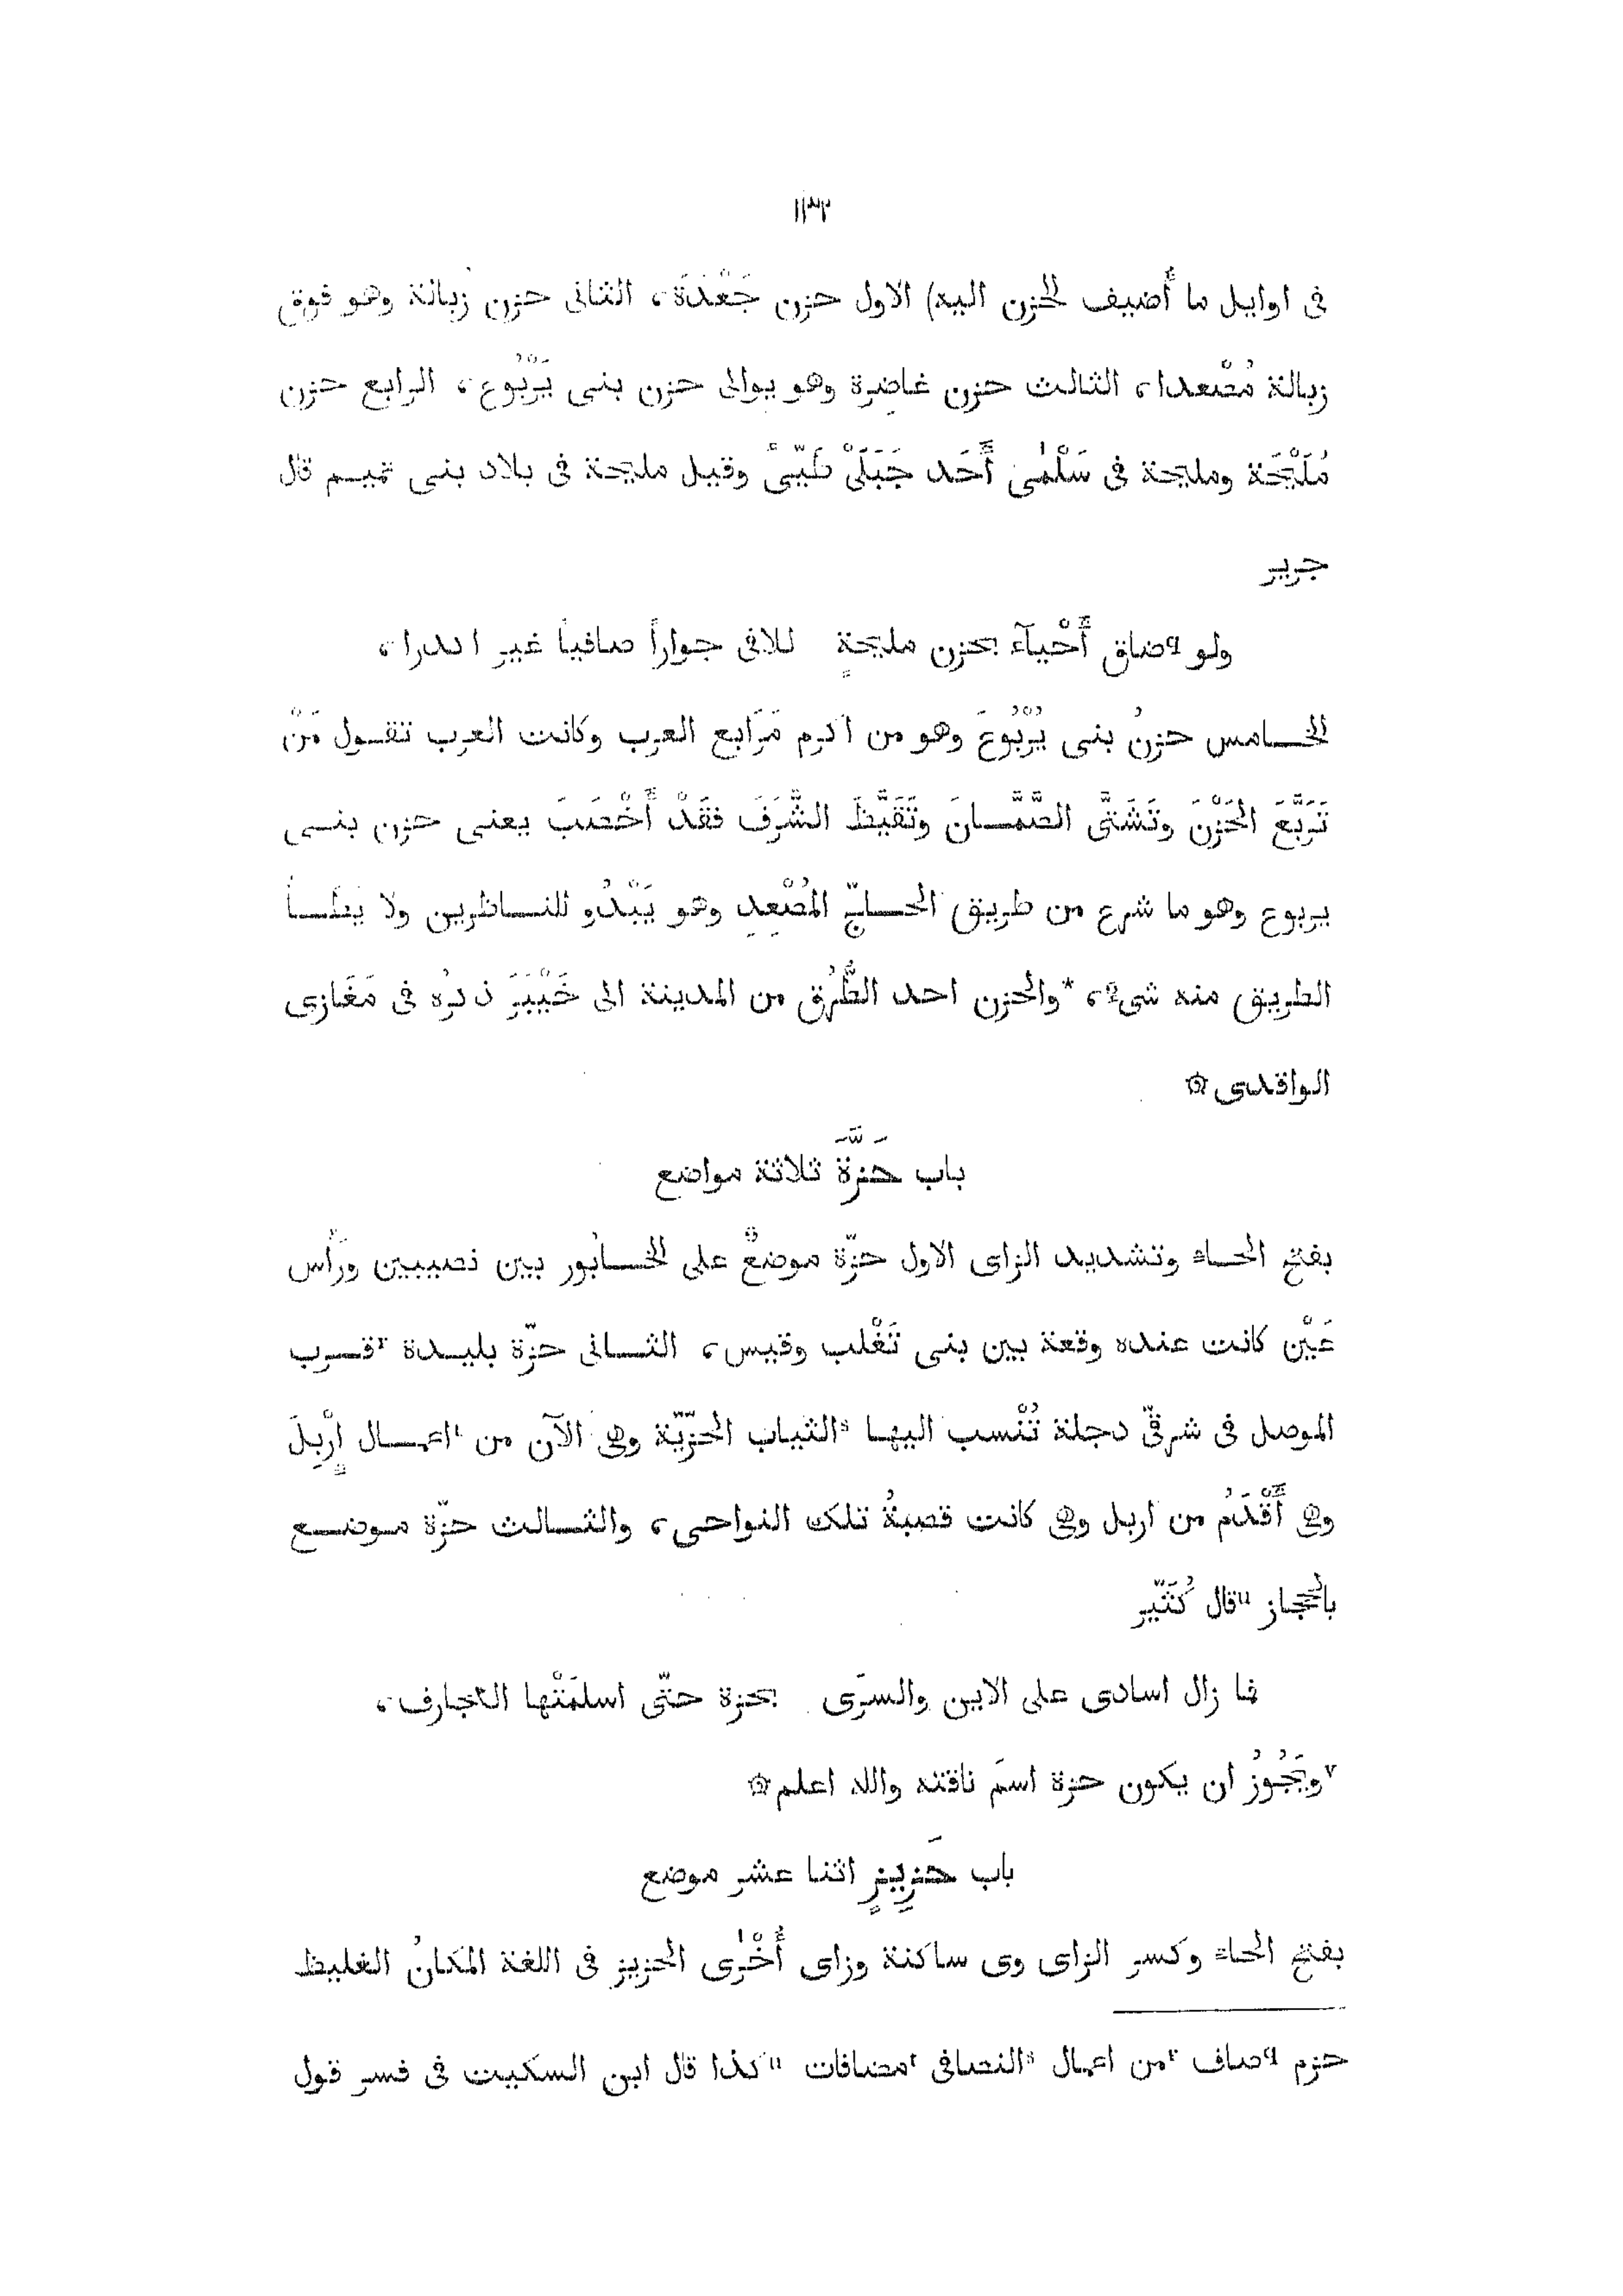 ١٣٢
فى اوايل ما أُضيف الحزن اليه) الاول حزن جَعْدَة، الثانى حزن زبالة وهو فوق
زبالة مُصْعدا، الثالث حزن غاضِرة وهو يوالى حزن بنى يَرْبُوع، الرابع حزن
مُلَيْحَة ومليحة فى سَلْمٰى أَحَد جَبَلَىْ طَيّىً وقيل مليحة فى بلاد بنى تميم قال
جرير
ولو ٩ضاق أَحْيآءَ بحزن مليحةٍ للاقى جواراً صافياً غير اكدرا،
الخامس حزنُ بنى يَرْبُوعَ وهو من اكرم مَرَابع العرب وكانت العرب تقول مَنْ
تَرَبَّعَ الحَزْنَ وتَشَتَّى الصَّمَّانَ وتَقَيَّظَ الشَّرَفَ فقَدْ أَخْصَبَ يعنى حزن بنى
يربوع وهو ما شرع من طريق الحاجّ المُصْعِدِ وهو يَبْدُو للناظرين ولا يطأ
الطريق منه شىء، *والحزن احد الطُّرُق من المدينة الى خَيْبَرَ ذكرُه فى مَغَازى
الواقدى ۞
باب حَزَّة ثلاثة مواضع
بفتح الحاء وتشديد الزاى الاول حزّة موضعٌ على الخابُور بين نصيبين ورَأْس
عَيْن كانت عنده وقعة بين بنى تَغْلب وقيس، الثانى حزّة بليدة ٢قرب
الموصل فى شرقىّ دجلة تُنْسب اليها ٤الثياب الحَزّيّة وهى الآن من ١اعمال إِرْبِلَ
وهى أَقْدَمُ من اربل وهى كانت قصبةُ تلك النواحى، والثالث حزّة موضع
بالحجاز ١١قال كُثَيّر
فما زال اسادى على الاين والسرَى بحزة حتّى اسلمَتْها العجارف،
٧ويَجُوزُ ان يكون حزة اسمَ ناقته والله اعلم ۞
باب حَزِيزٍ اثنا عشر موضع
بفتح الحاء وكسر الزاى وى ساكنة وزاى أُخْرٰى الحزيز فى اللغة المكانُ الغليظ
حزم ٩صاف ٢من اعمال ٤النصافى ١مضافات ١١كذا قال ابن السكيت فى فسر قول